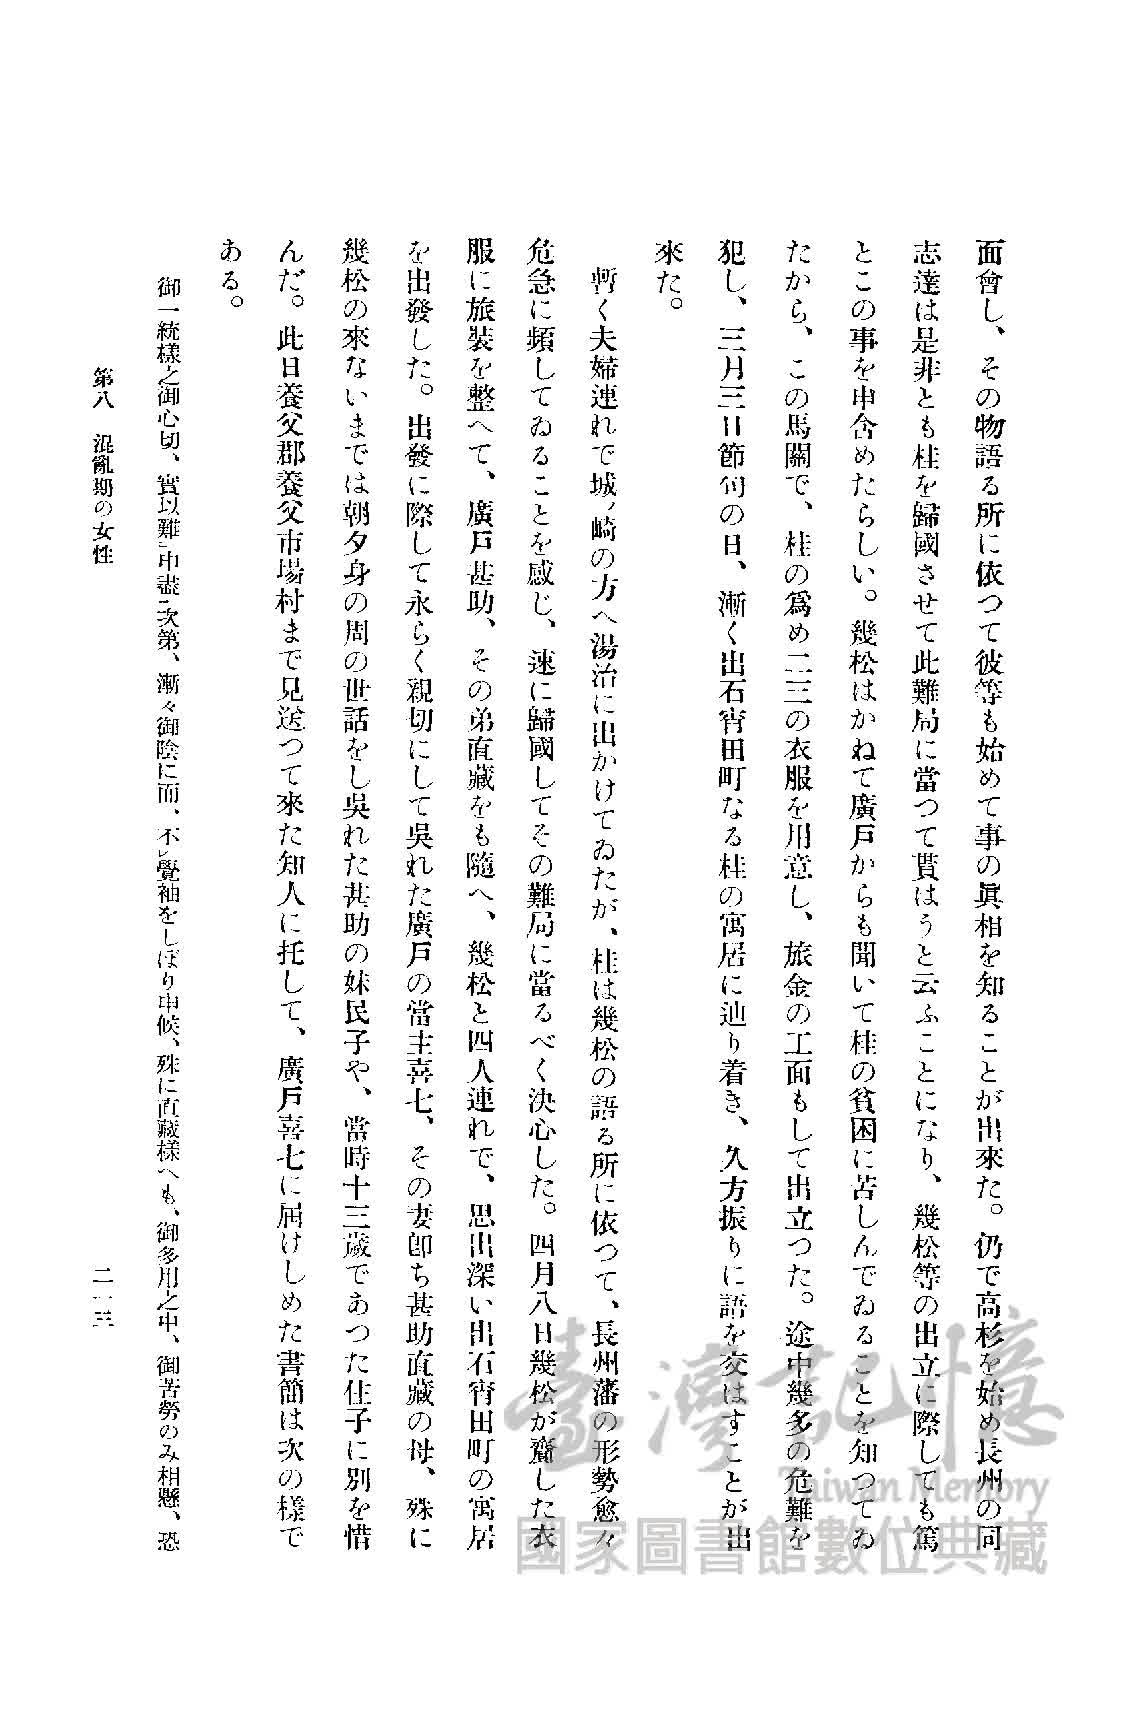 面會し、その物語る所に依つて彼等も始めて事の眞相を知ることが出來た。仍で高杉を始め長州の同
志達は是非とも桂を歸國させて此難局に當つて貰はうと云ふことになり、幾松等の出立に際しても篤
とこの事を申含めたらしい。幾松はかねて廣戸からも聞いて桂の貧困に苦しんでゐることを知つてゐ
たから、この馬關で、桂の爲め二三の衣服を用意し、旅金の工面もして出立つた。途中幾多の危難を
犯し、三月三日節句の日、漸く出石宵田町なる桂の寓居に辿り着き、久方振りに語を交はすことが出
來た。
暫く夫婦連れで城ノ崎の方へ湯治に出かけてゐたが、桂は幾松の語る所に依つて、長州藩の形勢愈々
危急に頻してゐることを感じ、速に歸國してその難局に當るべく決心した。四月八日幾松が齎した衣
服に旅裝を整へて、廣戸甚助、その弟直藏をも隨へ、幾松と四人連れで、思出深い出石宵田町の寓居
を出發した。出發に際して永らく親切にして吳れた廣戸の當主喜七、その妻卽ち甚助直藏の母、殊に
幾松の來ないまでは朝夕身の周の世話をし吳れた甚助の妹民子や、當時十三歲であつた住子に別を惜
んだ。此日養父郡養父市場村まで見送つて來た知人に托して、廣戸喜七に届けしめた書簡は次の樣で
ある。
御一統樣之御心切、實以難㆓申盡㆒次第、漸々御陰に而、不㆑覺袖をしぼり申候、殊に直藏樣へも、御多用之中、御苦勞のみ相懸、恐
第八 混亂期の女性
二一三
臺灣記憶
Taiwan Memory
國家圖書館數位典藏